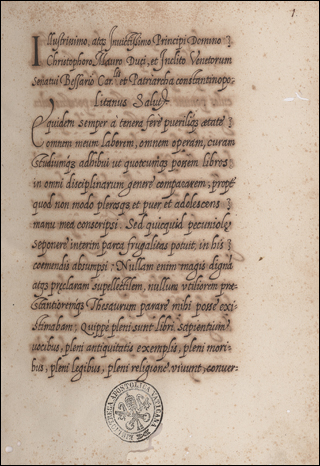 1.
Illustrissimo, atq; Invictissimo Principi Domino
Christophoro Mauro Duci, et Inclito Venetorum
senatui Bessario Car.lis et Patriarcha constantinopo-
Litanus Salut.
Equidem semper a tenera ferè puerilisq; aetate
omnem meum laborem, omnem operam, curam
studiumq; adhibui ut quotcumq; possem libros
in omni disciplinarum genere compararem, propt
quod non modo plerosq; et puer et adolescens
manu mea conscripsi. Sed quicquid pecuniolę
seponere interim parca frugalitas potuit, in his
coemendis absumpsi. Nullam enim magis dignā
atq; praeclaram supellectilem, nullum utiliorem prę-
stantioremq; Thesaurum parare mihi posse exi-
stimabam; Quippè pleni sunt libri sapientium
vocibus, pleni antiquitatis exemplis, pleni mori-
bus, pleni legibus, pleni religione. vivunt, conver-
BIBLIOTHECA APOSTOLICA VATICANA